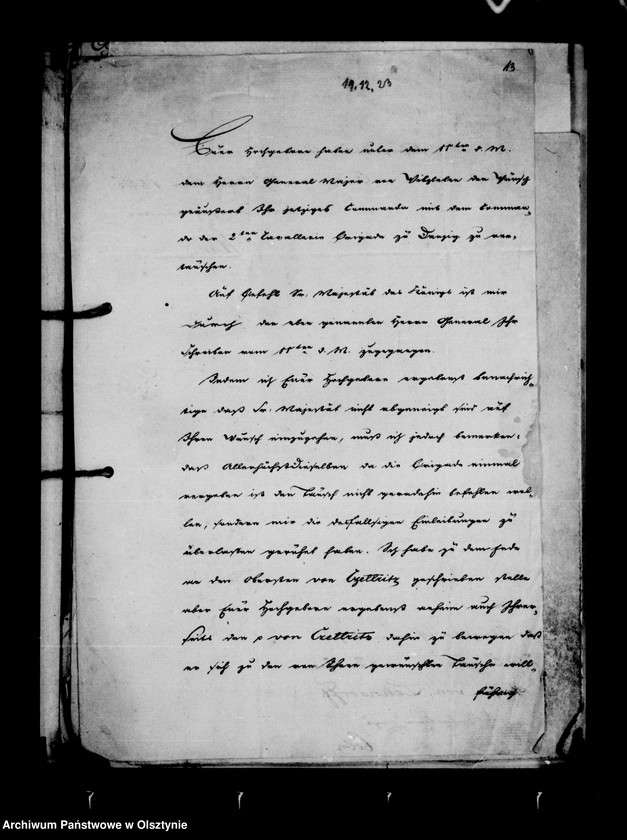 13
19.12.23
Euer Hochgeboren haben unter dem 11ten d. M.
dem Herrn General Major von Witzleben den Wunsch
geäußert Ihr jetziges Commando mit dem Comman-
do der 2ten Cavallerie Brigade zu Danzig zu ver-
tauschen.
Auf Befehl Sr. Majestät des Königs ist mir
durch den eben genannten Herrn General Ihr
Schreiben vom 11ten d. M. zugegangen.
Indem ich Euer Hochgeboren ergebenst benachrich-
tige daß Sr. Majestät nicht abgeneigt sind auf
Ihren Wunsch einzugehen, muß ich jedoch bemerken:
daß Allerhöchstdieselben da die Brigade einmal
vergeben ist den Tausch nicht geradehin befehlen wol-
len, sondern mir die desfallsigen Einleitungen zu
überlassen geruhet haben. Ich habe zu dem Ende
an den Obersten von Czettritz geschrieben stelle
aber Euer Hochgeboren ergebenst anheim auch Ihrer-
seits den p von Czettritz dahin zu bewegen daß
er sich zu den von Ihnen gewünschten Tausche will-
fährig
Archiwum Państwowe w Olsztynie